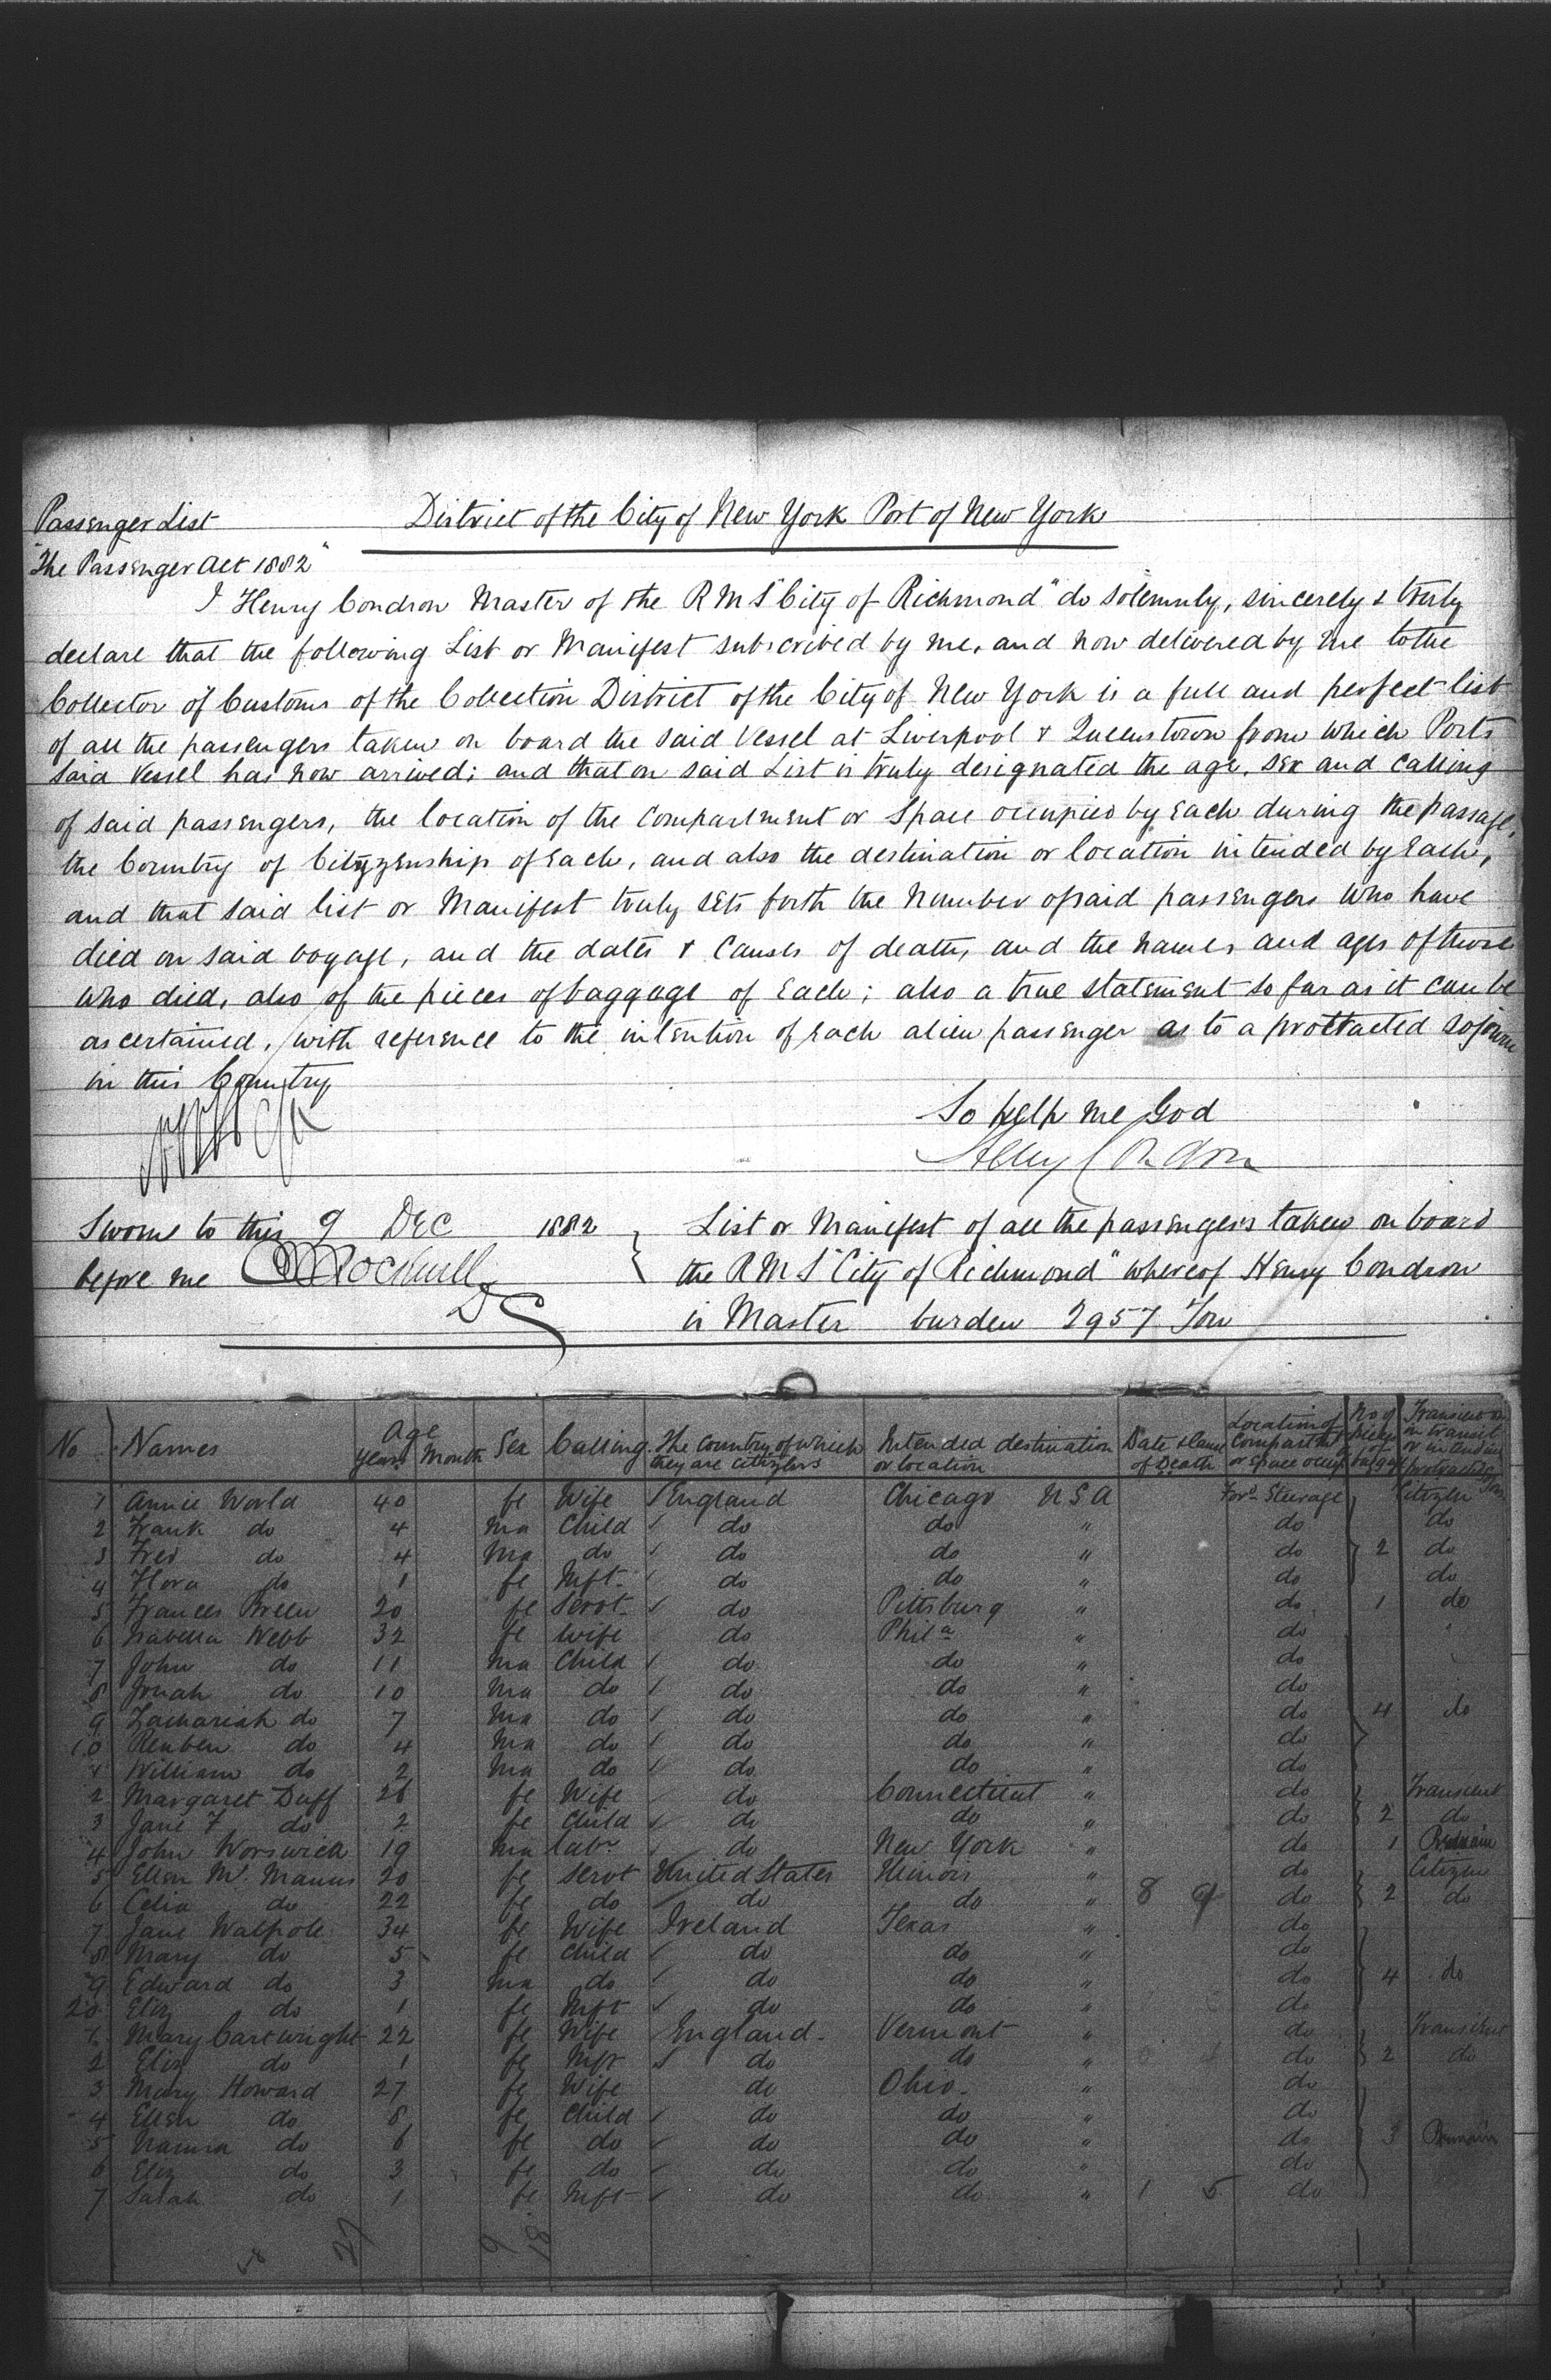 Passenger List
District of the City of New York Port of New York
"The Passenger Act 1882"
I Henry Condron Master of the R M S "City of Richmond" do solemnly, sincerely & truly
declare that the following List or Manifest subscribed by me, and now delivered by me to the
Collector of Customs of the Collection District of the City of New York is a full and perfect list
of all the passengers taken on board the said Vessel at Liverpool & Queenstown from which Ports
said Vessel has now arrived; and that on said List is truly designated the age, sex and calling
of said passengers, the location of the compartment or space occupied by each during the passage,
the Country of Cityzenship of each, and also the destination or location intended by each,
and that said list or Manifest truly sets forth the number of said passengers who have
died on said voyage, and the dates & causes of death, and the names and ages of those
who died, also of the pieces of baggage of each; also a true statement so far as it can be
ascertained, with reference to the intention of each alien passenger as to a protracted sojourn
in this Country
So help me God
Henry Condron
Sworn to this 9 DEC 1882
before me Rockwell
D C
List or Manifest of all the passengers taken on board
the R M S "City of Richmond" whereof Henry Condron
is Master burden 2957 Ton
No Names Age Years Month Sex Calling The Country of which they are citizens Intended destination or location Date & Cause of Death Location of Compartmt or space occup No of pieces of baggage Transient or in transit or intending protracted
1 Annie World 40 fe Wife England Chicago U S A For'd Steerage Citizen
2 Frank do 4 ma Child do do " do do
3 Fred do 4 ma do do do " do 2 do
4 Flora do 1 fe Inft do do " do do
5 Frances Breen 20 fe Servt do Pittsburg " do 1 do
6 Isabella Webb 32 fe Wife do Phila " do
7 John do 11 ma Child do do " do
8 Jonah do 10 ma do do do " do
9 Zachariah do 7 ma do do do " do 4 do
10 Reuben do 4 ma do do do " do
1 William do 2 ma do do do " do
2 Margaret Duff 26 fe Wife do Connecticut " do Transient
3 Jane F do 2 fe Child do do " do 2 do
4 John Worswick 19 ma labr do New York " do 1 Remain
5 Ellen Mc Manus 20 fe Servt United States Illinois " do Citizen
6 Celia do 22 fe do do do " 8 9 do 2 do
7 Jane Walpole 34 fe Wife Ireland Texas " do
8 Mary do 5 fe Child do do " do
9 Edward do 3 ma do do do " do 4 do
20 Eliz do 1 fe Inft do do " do
1 Mary Cartwright 22 fe Wife England Vermont " do Transient
2 Eliz do 1 fe Inft do do " do 2 do
3 Mary Howard 27 fe Wife do Ohio " do
4 Ellen do 8 fe Child do do " do
5 Hanna do 6 fe do do do " do 3 Remain
6 Eliz do 3 fe do do do " do
7 Sarah do 1 fe Inft do do " 1 5 do
27 9 18